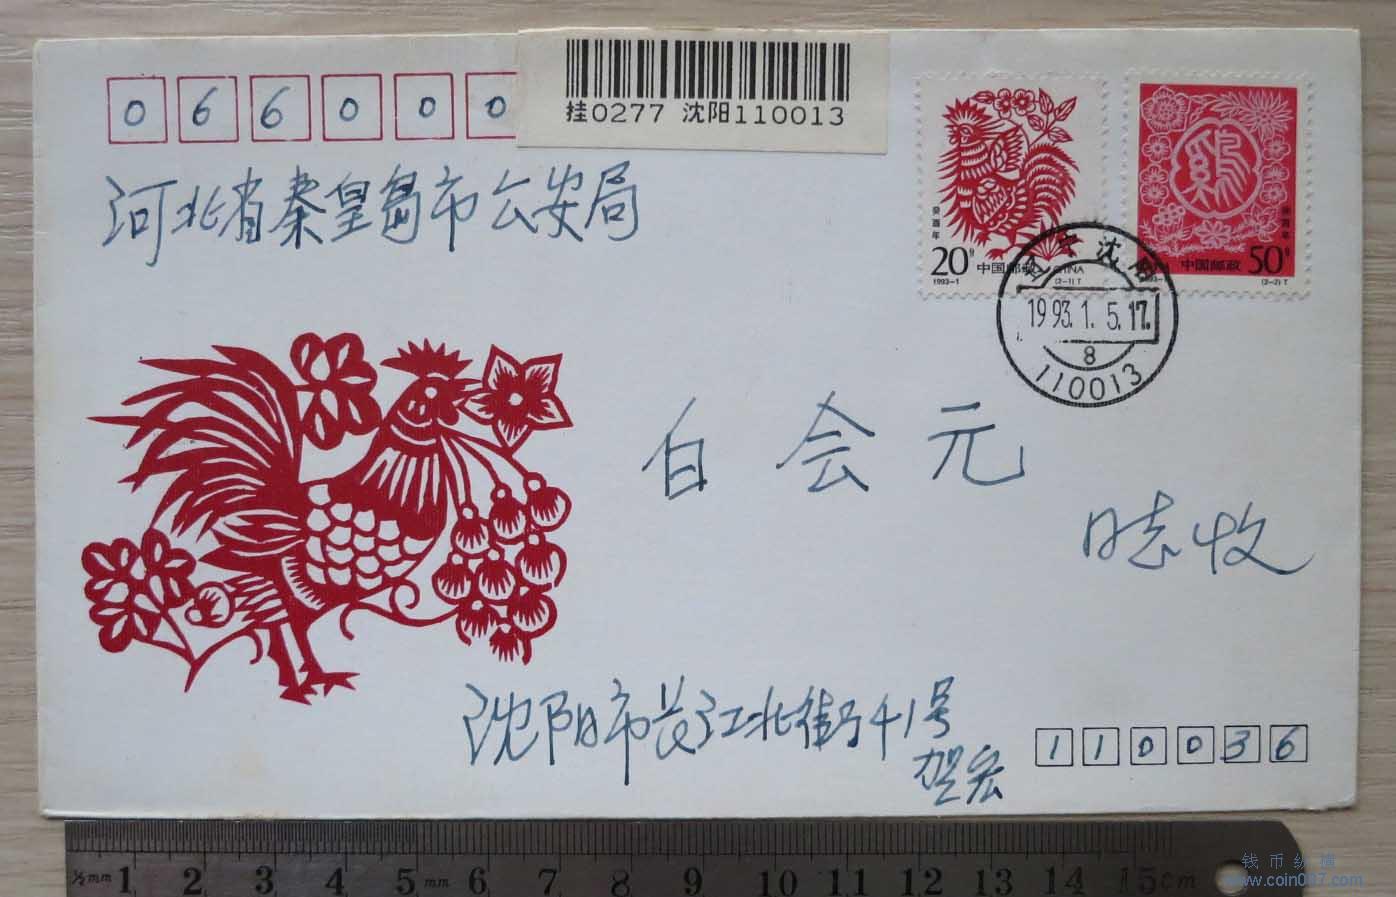 066000
挂0277 沈阳110013
河北省秦皇岛市公安局
癸酉年
20分 中国邮政 CHINA
1993-1 (2-1)T
癸酉年
中国邮政 50分
(2-2)T
沈
1993.1.5.17.
8
110013
白会元
同志收
沈阳市长江北街41号
贺宏
110036
½mm 1 2 3 4 5 mm 6 7 8 9 10 11 12 13 14 15cm
钱币纵横
www.coin007.com